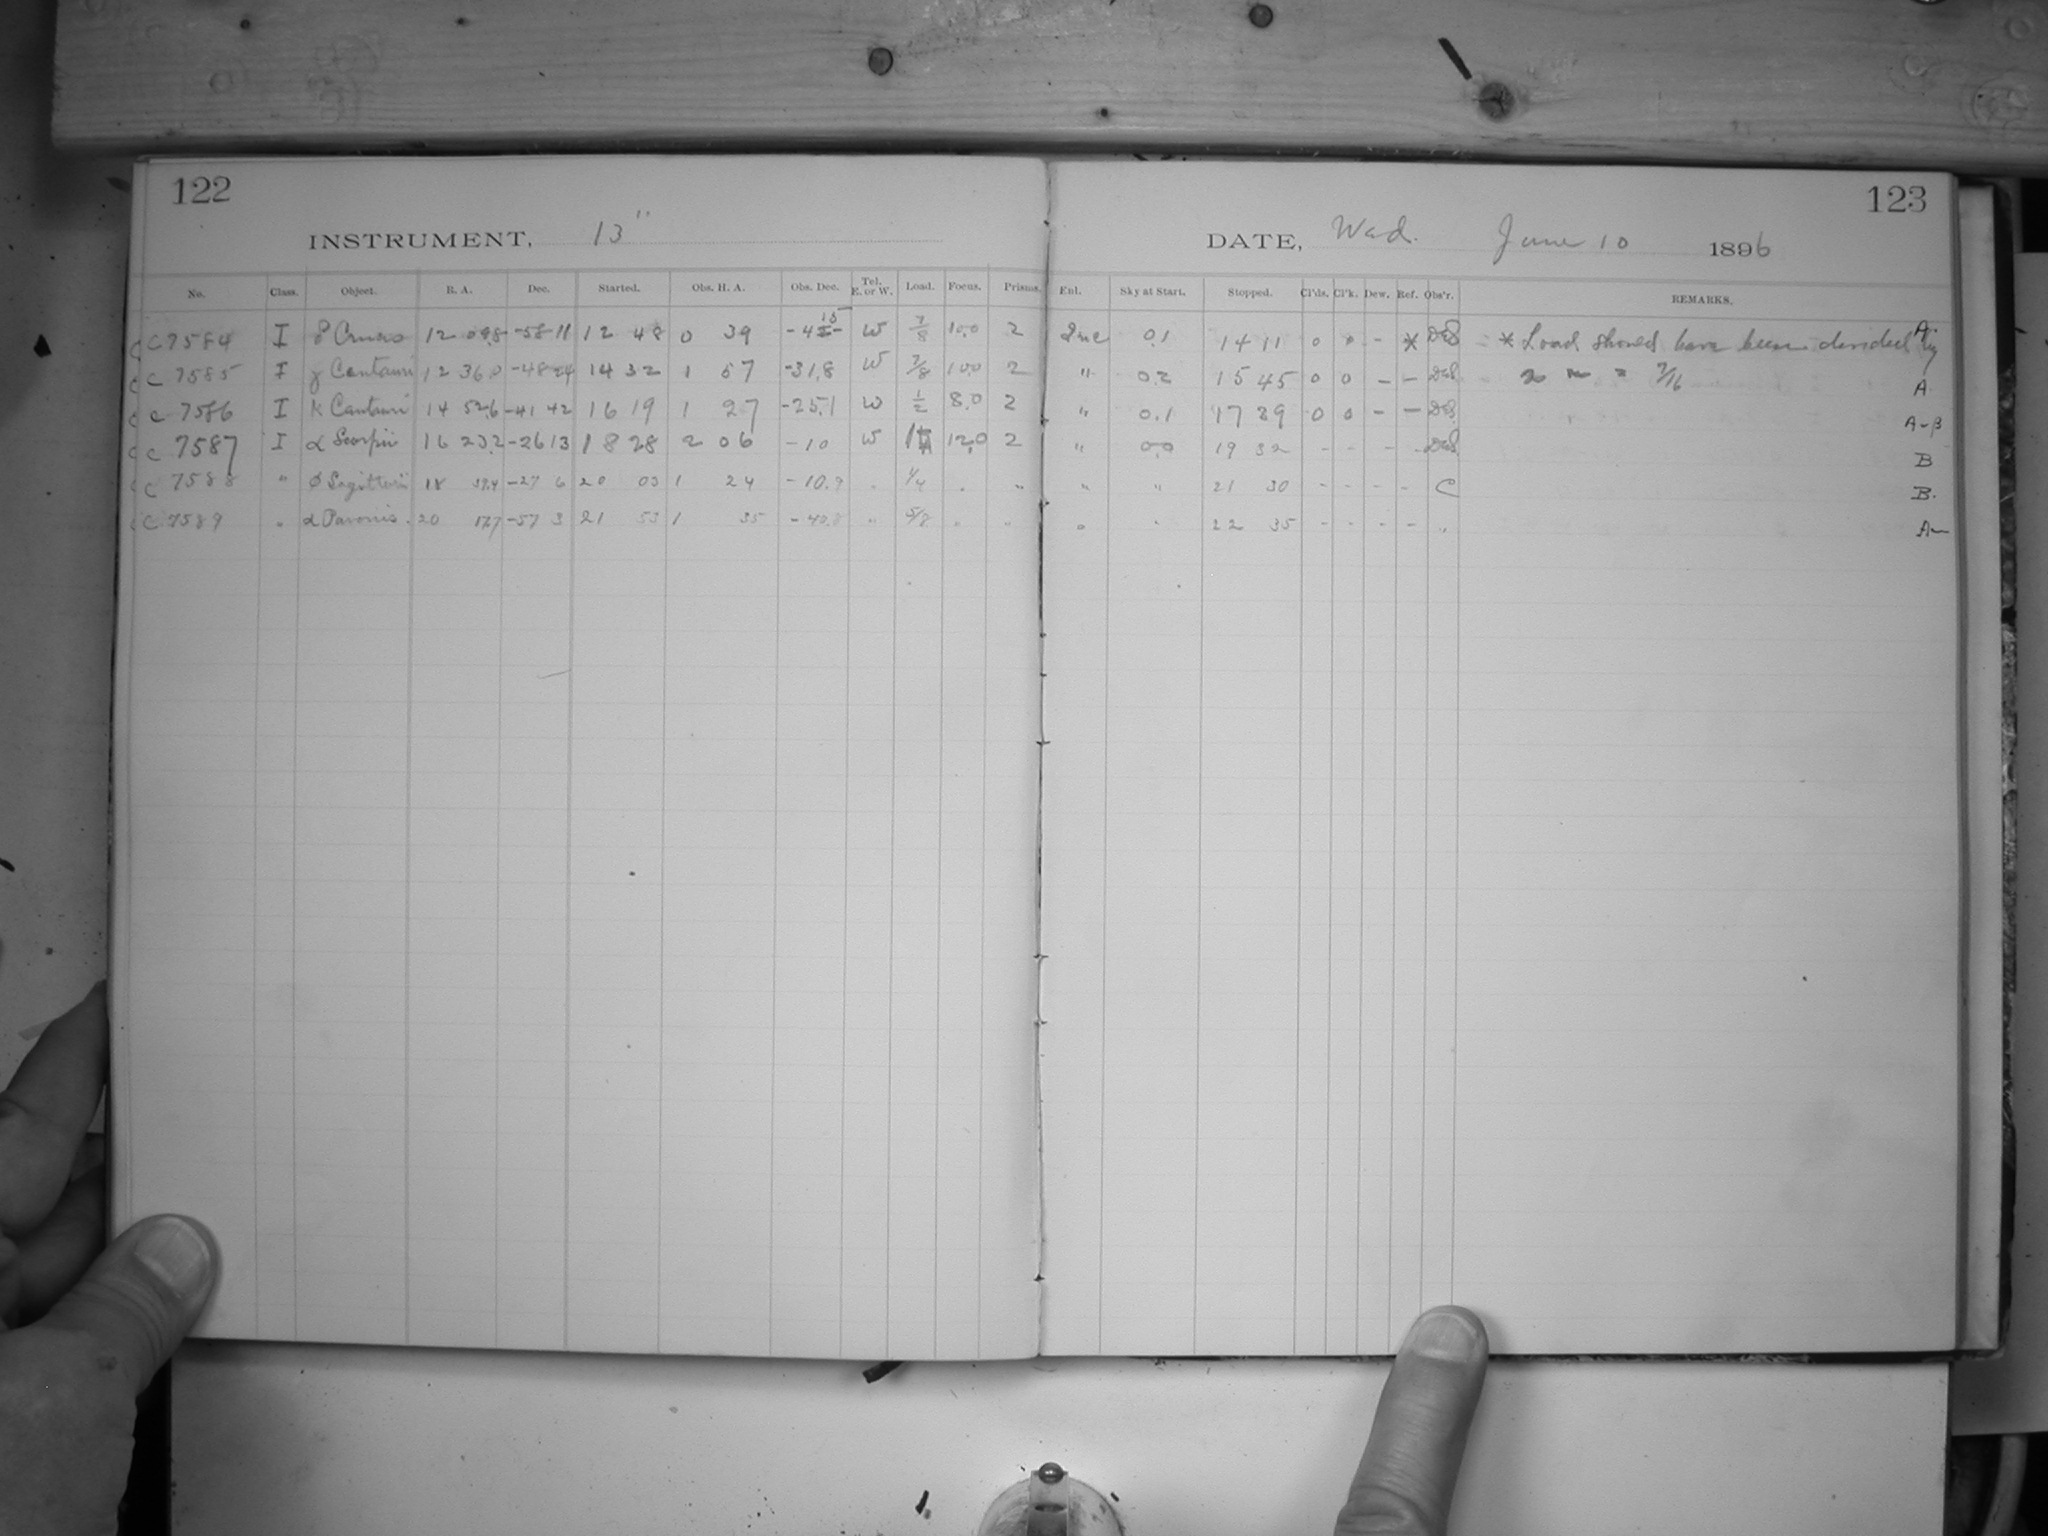 122
123
INSTRUMENT, 13"
DATE, Wed. June 10 1896
No. Class. Object. R. A. Dec. Started. Obs. H. A. Obs. Dec. Tel. E. or W. Load. Focus. Prisms. Enl. Sky at Start. Stopped. Cl'ds. Cl'k. Dew. Ref. Obs'r. REMARKS.
C 7584 I δ Crucis 12 09.8 -58 11 12 48 0 39 W 7/8 10.0 2 2nc 0.1 14 11 0 0 - * * Load should have been divided by A.
C 7585 I γ Centauri 12 36.0 -48 24 14 32 1 57 -31.8 W 7/8 10.0 2 " 0.2 15 45 0 0 - - 2 ~ = 7/16 A
C 7586 I κ Centauri 14 52.6 -41 42 16 19 1 27 -25.1 W 1/2 8.0 2 " 0.1 17 39 0 0 - - A-B
C 7587 I α Scorpii 16 23.2 -26 13 18 28 2 06 -10 W 12.0 2 " 0.0 19 32 - - - - B
C 7588 " φ Sagittarii 18 39.4 -27 6 20 03 1 24 -10.9 " 1/4 " " " " 21 30 - - - - C B.
C 7589 " α Pavonis. 20 17.7 -57 3 21 53 1 35 -40.8 " 5/8 " " " " 22 35 - - - - " A-